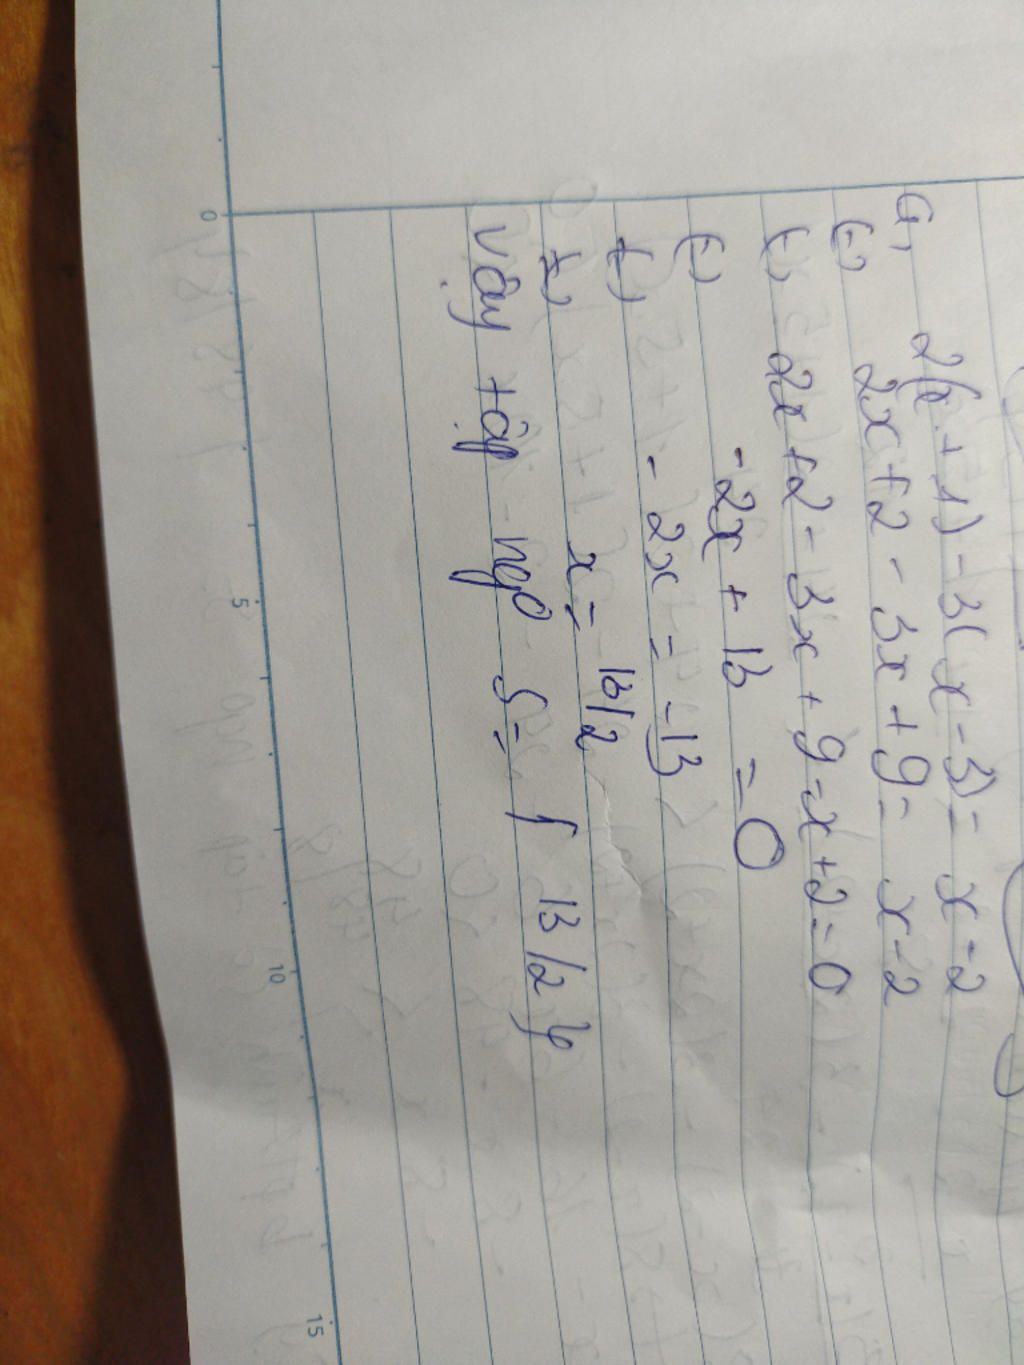 a, 2(x + 1) - 3(x - 3) = x - 2
(=) 2x + 2 - 3x + 9 = x - 2
(=) 2x + 2 - 3x + 9 - x + 2 = 0
(=) -2x + 13 = 0
(=) - 2x = -13
(=) x = 13/2
Vậy tập ngo S = { 13/2 }
0 5 10 15